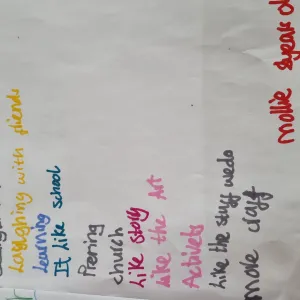 Laughing with friends
Learning
It like school
Prering
church
Like story
Like the Art
Activets
Like the stuff we do
make craft
mollie speak